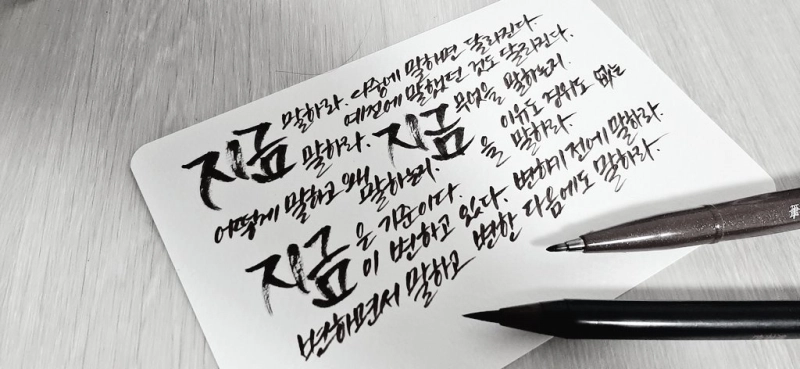 지금 말하라. 나중에 말하면 달라진다.
예전에 말했던 것도 달라진다.
말하라. 지금 무엇을 말하는지.
어떻게 말하고 왜 말하는지. 이유도 경위도 없는
을 말하라.
지금은 기준이다.
이 변하고 있다. 변하기 전에 말하라.
변하면서 말하고 변한 다음에도 말하라.